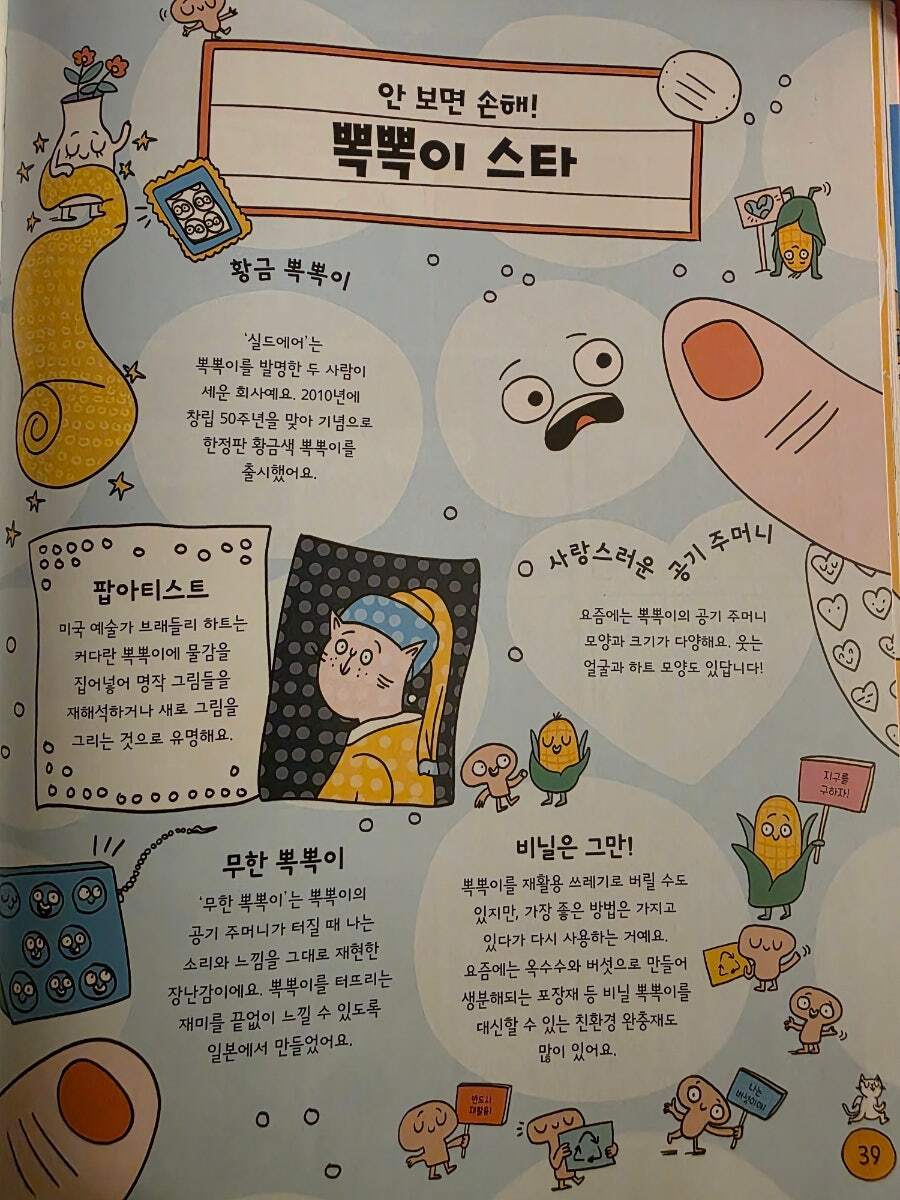 안 보면 손해!
뽁뽁이 스타
황금 뽁뽁이
‘실드에어’는
뽁뽁이를 발명한 두 사람이
세운 회사예요. 2010년에
창립 50주년을 맞아 기념으로
한정판 황금색 뽁뽁이를
출시했어요.
팝아티스트
미국 예술가 브래들리 하트는
커다란 뽁뽁이에 물감을
집어넣어 명작 그림들을
재해석하거나 새로 그림을
그리는 것으로 유명해요.
사랑스러운 공기 주머니
요즘에는 뽁뽁이의 공기 주머니
모양과 크기가 다양해요. 웃는
얼굴과 하트 모양도 있답니다!
무한 뽁뽁이
‘무한 뽁뽁이’는 뽁뽁이의
공기 주머니가 터질 때 나는
소리와 느낌을 그대로 재현한
장난감이에요. 뽁뽁이를 터뜨리는
재미를 끝없이 느낄 수 있도록
일본에서 만들었어요.
비닐은 그만!
뽁뽁이를 재활용 쓰레기로 버릴 수도
있지만, 가장 좋은 방법은 가지고
있다가 다시 사용하는 거예요.
요즘에는 옥수수와 버섯으로 만들어
생분해되는 포장재 등 비닐 뽁뽁이를
대신할 수 있는 친환경 완충재도
많이 있어요.
지구를
구하자!
반드시
재활용!
나는
버섯이야!
39